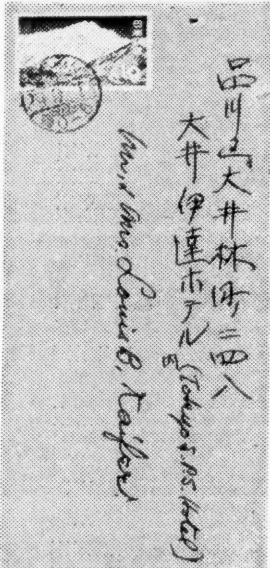 品川区大井林町二四八
大井伊達ホテル内 (Tokyo S.P.S. Hotel)
Mr. & Mrs. Louis B.